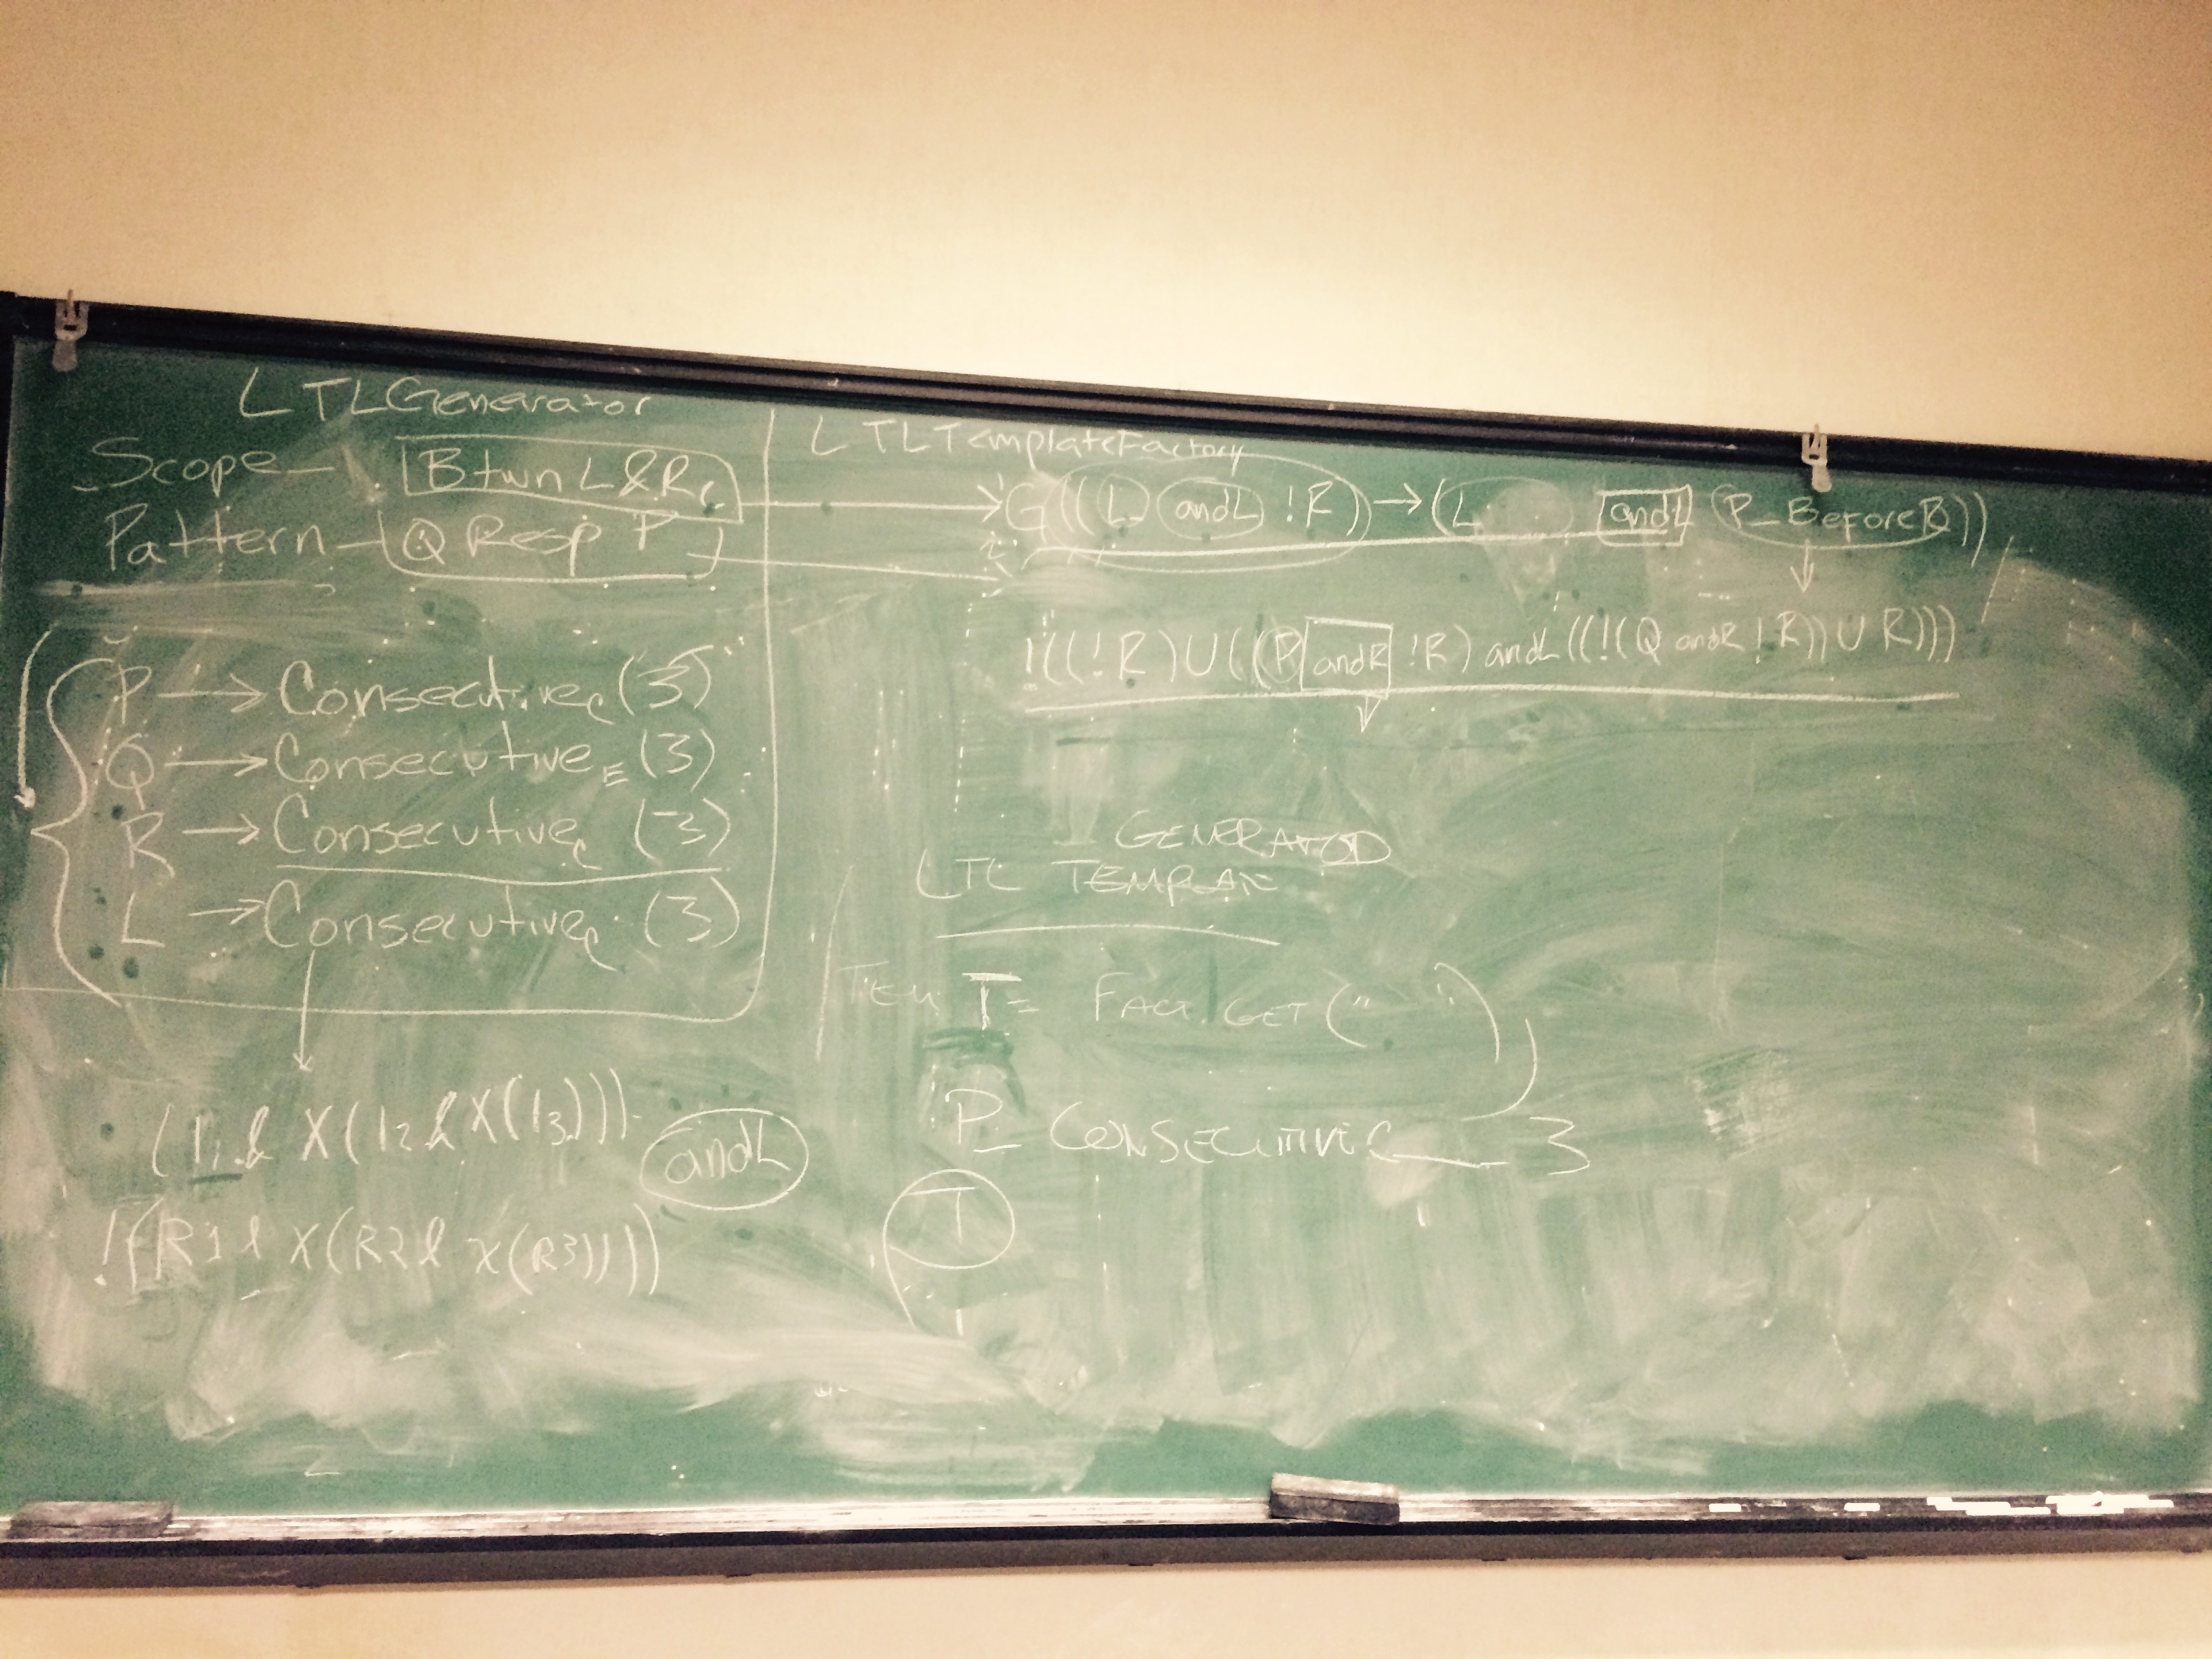 LTLGenerator
Scope - Btwn L & Rc
Pattern - Q Resp P
P → Consecutivec (3)
Q → ConsecutiveE (3)
R → Consecutivec (3)
L → Consecutivec (3)
(l1 & X(l2 & X(l3)))
andL
!(R1 & X(R2 & X(R3)))
LTLTemplateFactory
G((L andL !R) → (L andL (P_BeforeR))
!((!R) U ((P andR !R) andL ((!(Q andR !R)) U R)))
GENERATOR
LTL
T = FACT. GET (" ")
P_ CONSECUTIVE C_ 3
T